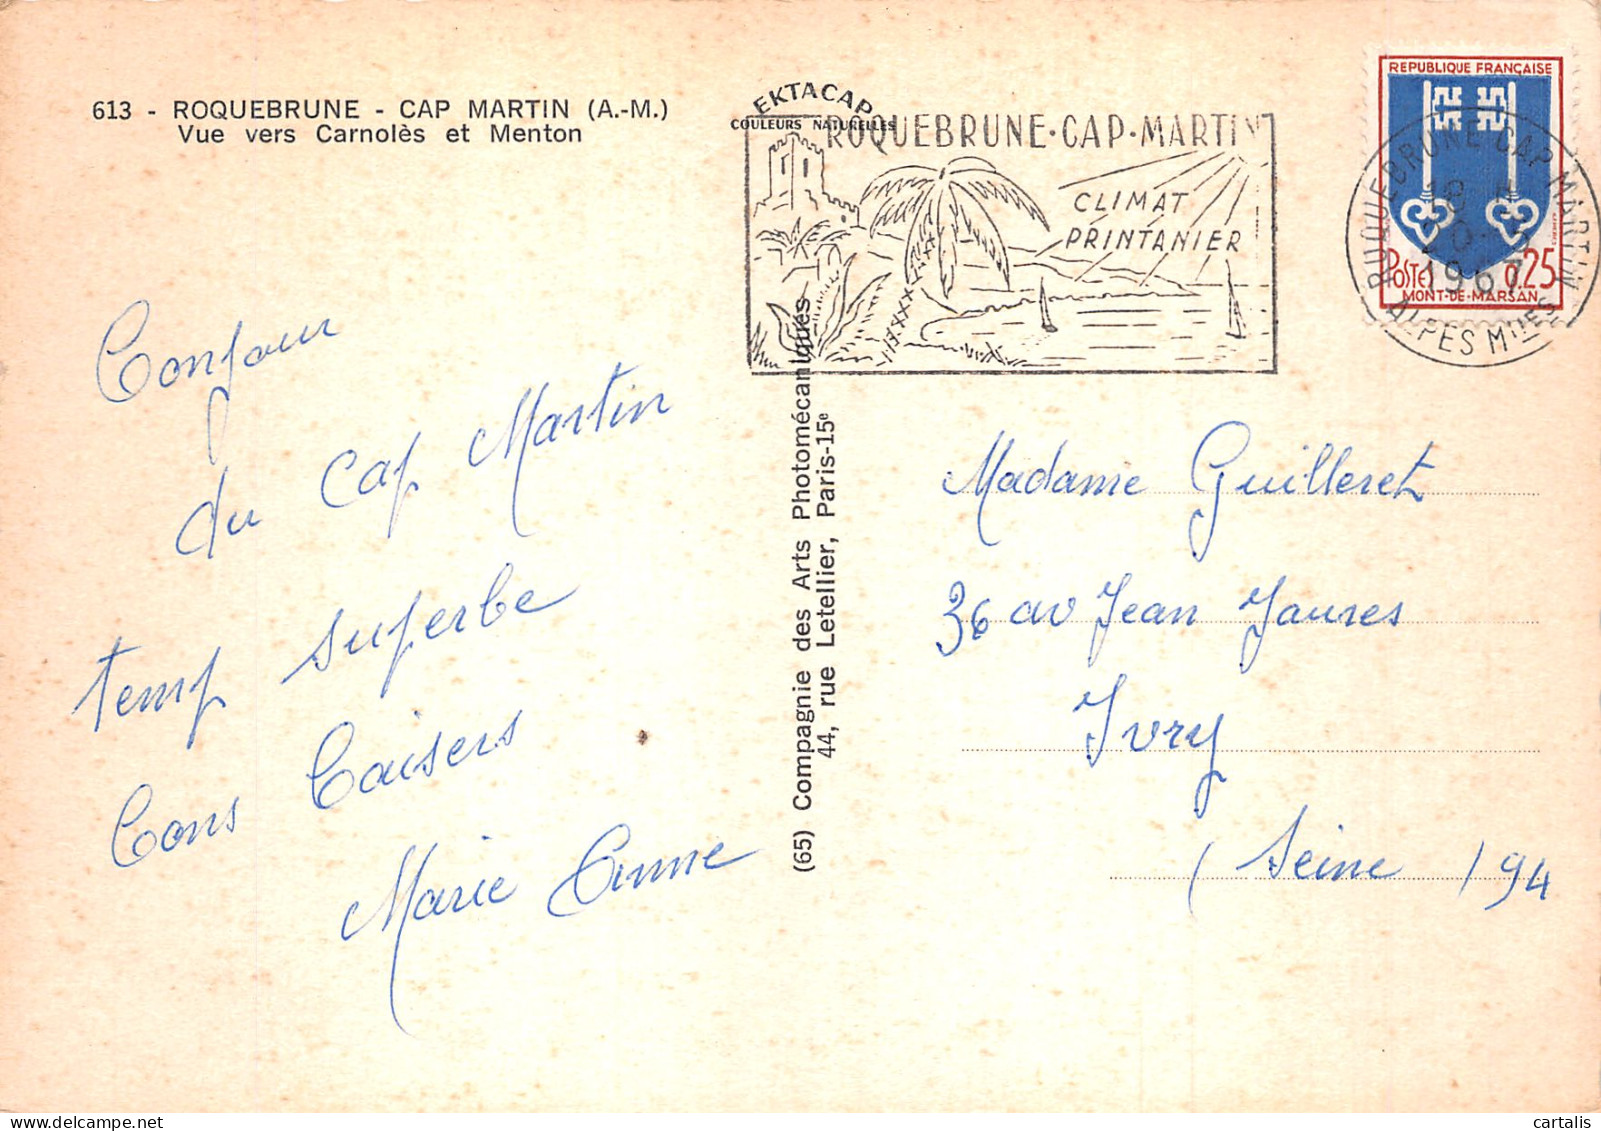 613 - ROQUEBRUNE - CAP MARTIN (A.-M.)
Vue vers Carnolès et Menton
EKTACAP
COULEURS NATURELLES
ROQUEBRUNE·CAP·MARTIN
CLIMAT
PRINTANIER
REPUBLIQUE FRANÇAISE
POSTES 0,25
MONT-DE-MARSAN
ROQUEBRUNE CAP MARTIN
1967
ALPES MMES
Bonjour
du Cap Martin
temp superbe
Bons Baisers
Marie Anne
(65) Compagnie des Arts Photomécaniques
44, rue Letellier, Paris-15e
Madame Guilleret
36 av Jean Jaures
Ivry
(Seine) 94
cartalis
delcampe.net